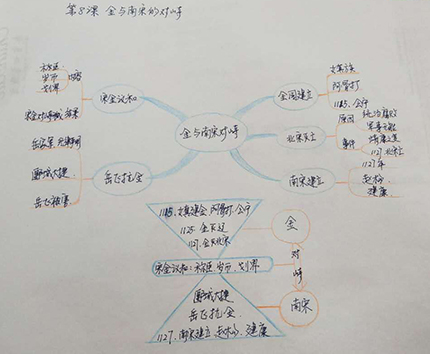 第8课 金与南宋的对峙
金与南宋对峙
宋金议和
内容
称臣
岁币
划界
结果
宋金对峙
岳飞抗金
郾城大捷
岳飞被害
金国建立
女真族
阿骨打
1115. 会宁
北宋灭亡
原因
统治腐败
事件
1127. 北宋亡
南宋建立
1127年
赵构
建康
1115. 女真建金 阿骨打 会宁
1125 金灭辽
1127. 金灭北宋
金
宋金议和：称臣 岁币 划界
对
峙
郾城大捷
岳飞抗金
1127. 南宋建立 赵构 建康
南宋